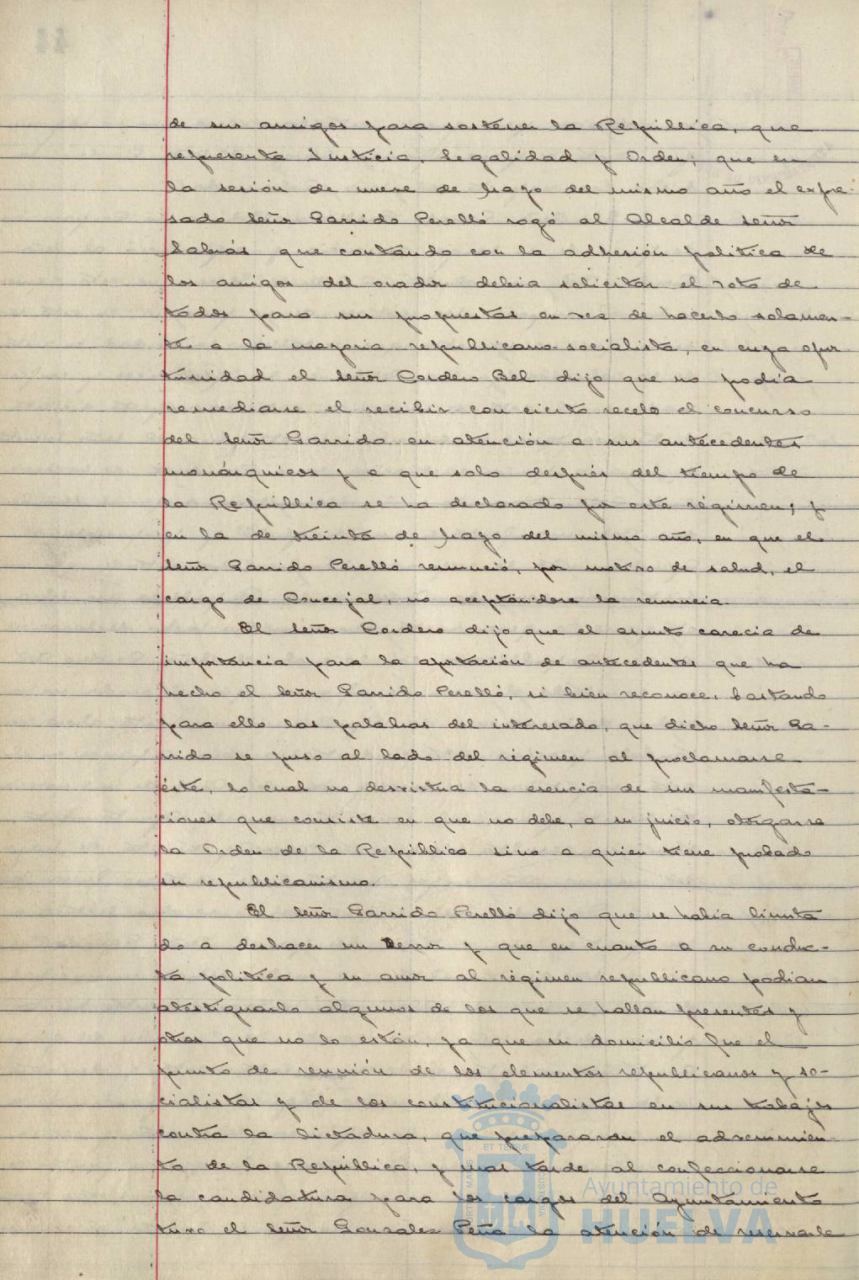 de sus amigos para sostener la República, que
representa Justicia, legalidad y Orden; que en
la sesión de nueve de Mayo del mismo año el expre-
sado Señor Garrido Perelló rogó al Alcalde Señor
Sabrás que contando con la adhesión política de
los amigos del orador debia solicitar el voto de
todos para sus propuestas en vez de hacerlo solamen-
te a la mayoria republicano-socialista, en cuya opor
tunidad el Señor Cordero Bel dijo que no podía
remediarse el recibir con cierto recelo el concurso
del Señor Garrido en atención a sus antecedentes
monárquicos y a que solo después del tiempo de
la República se ha declarado por este régimen; y
en la de treinta de Mayo del mismo año, en que el
Señor Garrido Perelló renunció, por motivo de salud, el
cargo de Concejal, no aceptándose la renuncia.
El Señor Cordero dijo que el asunto carecia de
importancia para la aportación de antecedentes que ha
hecho el Señor Garrido Perelló, si bien reconoce, bastando
para ello las palabras del interesado, que dicho Señor Ga-
rrido se puso al lado del régimen al proclamarse
éste, lo cual no desvirtua la esencia de sus manifesta-
ciones que consiste en que no debe, a su juicio, otorgarse
la Orden de la República sino a quien tiene probado
su republicanismo.
El Señor Garrido Perelló dijo que se había limita
do a deshacer un error y que en cuanto a su conduc-
ta política y su amor al régimen republicano podian
atestiguarlo algunos de los que se hallan presentes y
otros que no lo están, ya que su domicilio fue el
punto de reunión de los elementos republicanos y so-
cialistas y de los constitucionalistas en sus trabajos
contra la dictadura, que prepararon el advenimien-
to de la República, y mas tarde al confeccionarse
la candidatura para los cargos del Ayuntamiento
tuvo el Señor Gonzalez Peña la atención de reservarle
Ayuntamiento de
HUELVA